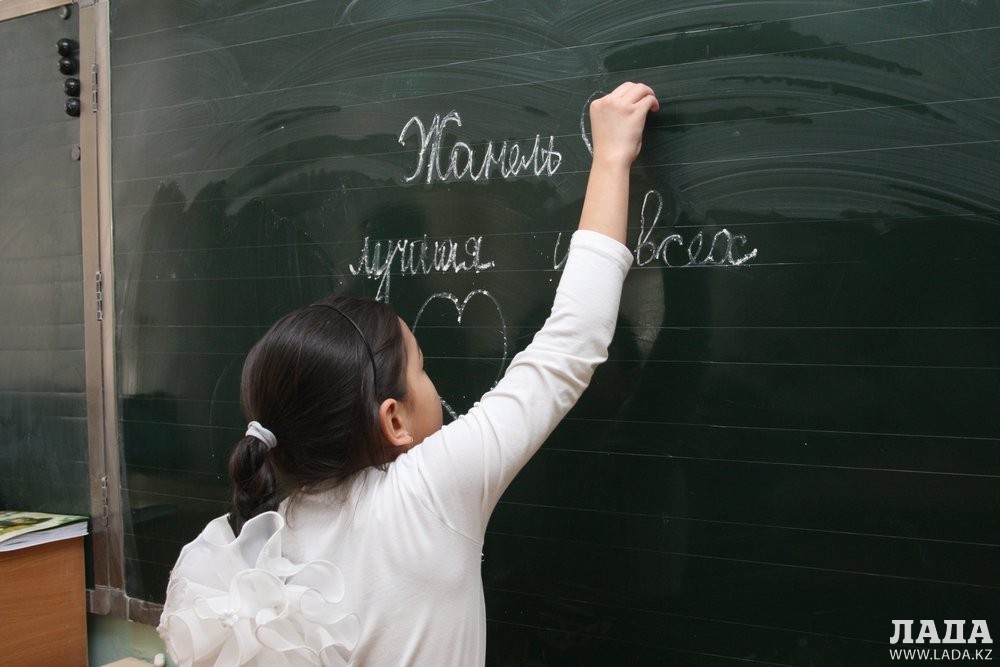 Жанель
лучшая из всех
ЛАДА
WWW.LADA.KZ